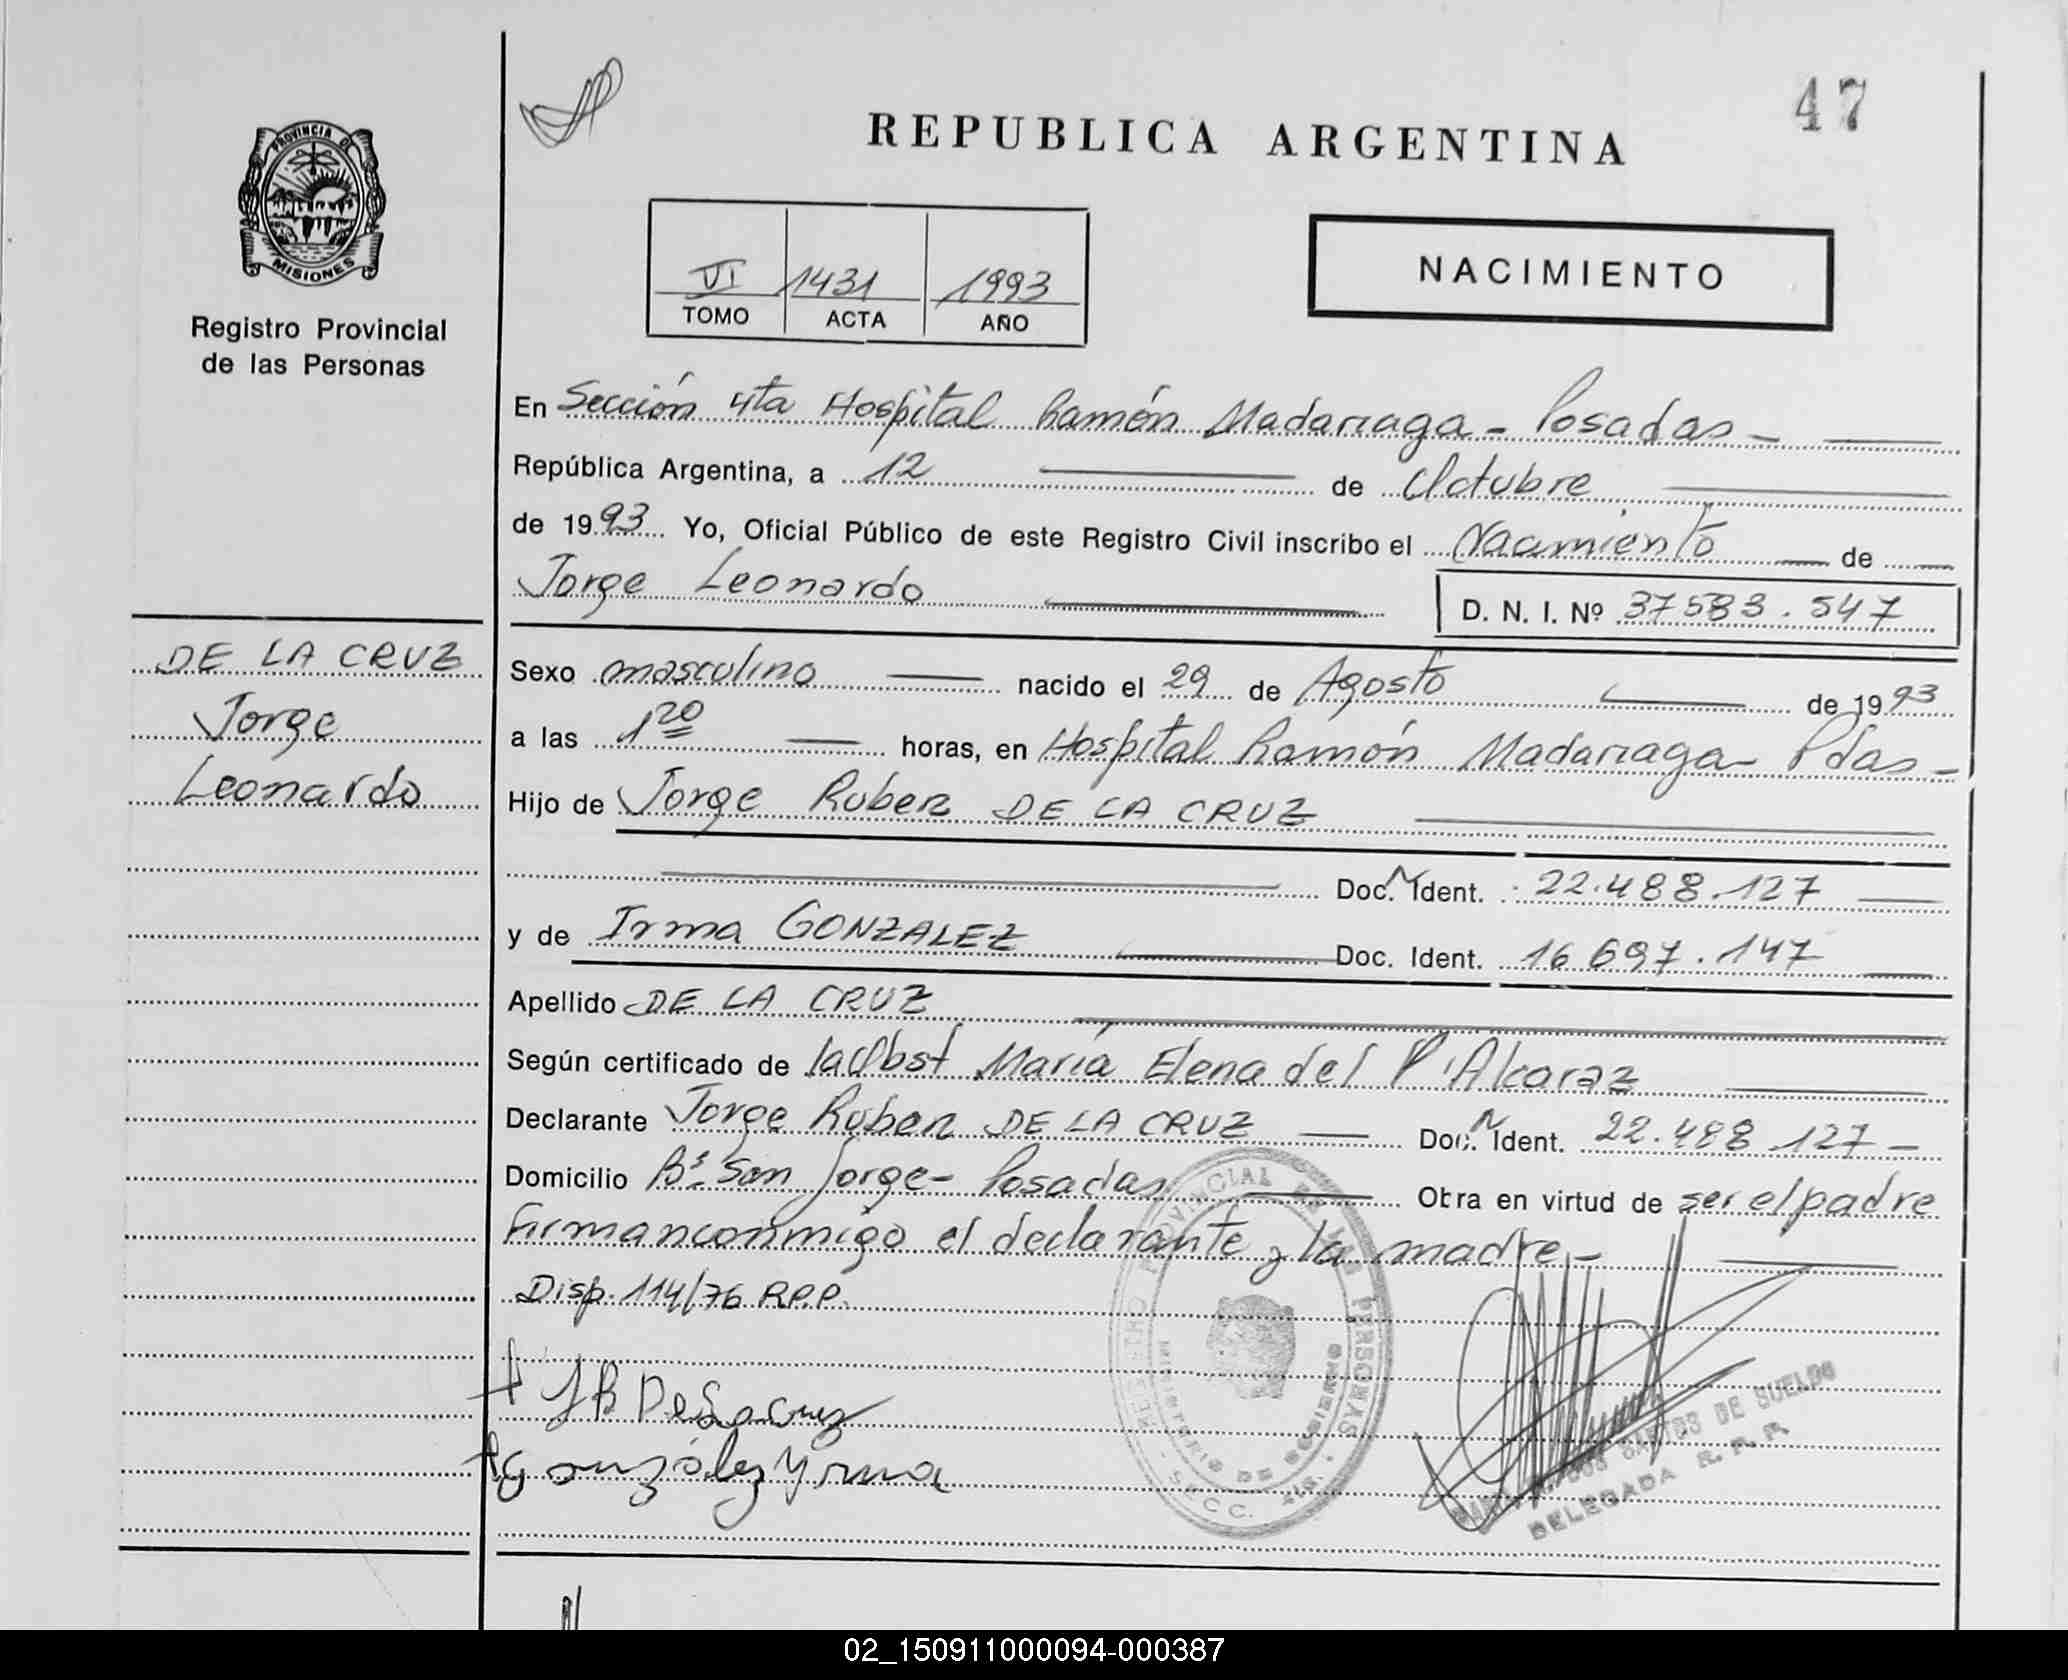 47
REPUBLICA ARGENTINA
PROVINCIA DE
MISIONES
Registro Provincial
de las Personas
VI 1431 1993
TOMO ACTA AÑO
NACIMIENTO
En Sección 4ta Hospital Ramón Madariaga - Posadas -
República Argentina, a 12 de Octubre
de 1993 Yo, Oficial Público de este Registro Civil inscribo el Nacimiento de
Jorge Leonardo D. N. I. Nº 37583.547
DE LA CRUZ
Jorge
Leonardo
Sexo masculino nacido el 29 de Agosto de 1993
a las 1 20 horas, en Hospital Ramón Madariaga - Pdas -
Hijo de Jorge Ruben DE LA CRUZ
Doc. N Ident. 22.488.127
y de Irma GONZALEZ Doc. Ident. 16 697.147
Apellido DE LA CRUZ
Según certificado de la Obst María Elena del P. Alcaraz
Declarante Jorge Ruben DE LA CRUZ Doc. N Ident. 22.488.127 -
Domicilio Bº San Jorge - Posadas Obra en virtud de ser el padre
Firman conmigo el declarante y la madre -
Disp. 114/76 R.P.P.
J R De La Cruz
Gonzólez Yrma
REGISTRO PROVINCIAL DE LAS PERSONAS
MINISTERIO DE GOBIERNO
SECC. 4ta.
SANTOS DE SUELDO
DELEGADA R. P. P.
02_150911000094-000387